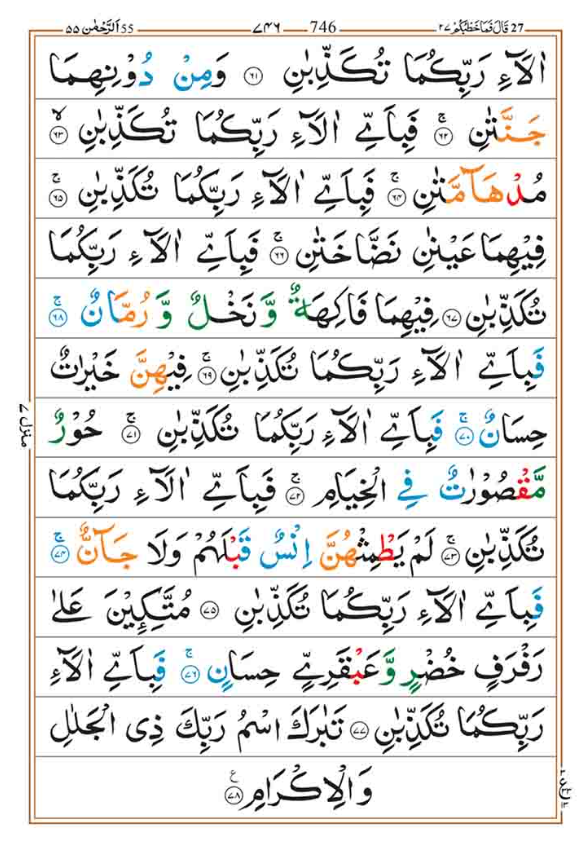 55 اَلرَّحْمٰن ۵۵ 746 ۷۴۶ 27 قَالَ فَمَا خَطْبُكُمْ ۲۷
اٰلَآءِ رَبِّكُمَا تُكَذِّبٰنِ ۶۱ وَمِنْ دُوْنِهِمَا
جَنَّتٰنِ ۚ ۶۲ فَبِاَيِّ اٰلَآءِ رَبِّكُمَا تُكَذِّبٰنِ ۙ ۶۳
مُدْهَآمَّتٰنِ ۚ ۶۴ فَبِاَيِّ اٰلَآءِ رَبِّكُمَا تُكَذِّبٰنِ ۚ ۶۵
فِيْهِمَا عَيْنٰنِ نَضَّاخَتٰنِ ۚ ۶۶ فَبِاَيِّ اٰلَآءِ رَبِّكُمَا
تُكَذِّبٰنِ ۶۷ فِيْهِمَا فَاكِهَةٌ وَّنَخْلٌ وَّرُمَّانٌ ۚ ۶۸
فَبِاَيِّ اٰلَآءِ رَبِّكُمَا تُكَذِّبٰنِ ۚ ۶۹ فِيْهِنَّ خَيْرٰتٌ
حِسَانٌ ۚ ۷۰ فَبِاَيِّ اٰلَآءِ رَبِّكُمَا تُكَذِّبٰنِ ۚ ۷۱ حُوْرٌ
مَّقْصُوْرٰتٌ فِي الْخِيَامِ ۚ ۷۲ فَبِاَيِّ اٰلَآءِ رَبِّكُمَا
تُكَذِّبٰنِ ۚ ۷۳ لَمْ يَطْمِثْهُنَّ اِنْسٌ قَبْلَهُمْ وَلَا جَآنٌّ ۚ ۷۴
فَبِاَيِّ اٰلَآءِ رَبِّكُمَا تُكَذِّبٰنِ ۷۵ مُتَّكِـِٕيْنَ عَلٰى
رَفْرَفٍ خُضْرٍ وَّعَبْقَرِيٍّ حِسَانٍ ۚ ۷۶ فَبِاَيِّ اٰلَآءِ
رَبِّكُمَا تُكَذِّبٰنِ ۷۷ تَبٰرَكَ اسْمُ رَبِّكَ ذِي الْجَلٰلِ
وَالْاِكْرَامِ ۷۸ ع
منزل ۷